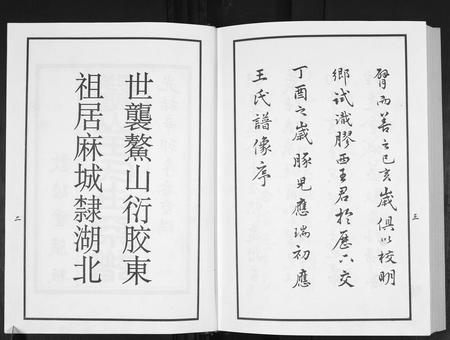 二
祖居麻城隸湖北
世襲鰲山衍胶東
王氏譜像序
丁酉之歲豚兒應瑞初應
鄉試識膠西王君於歷下交
臂而善之己亥歲俱以校明
三